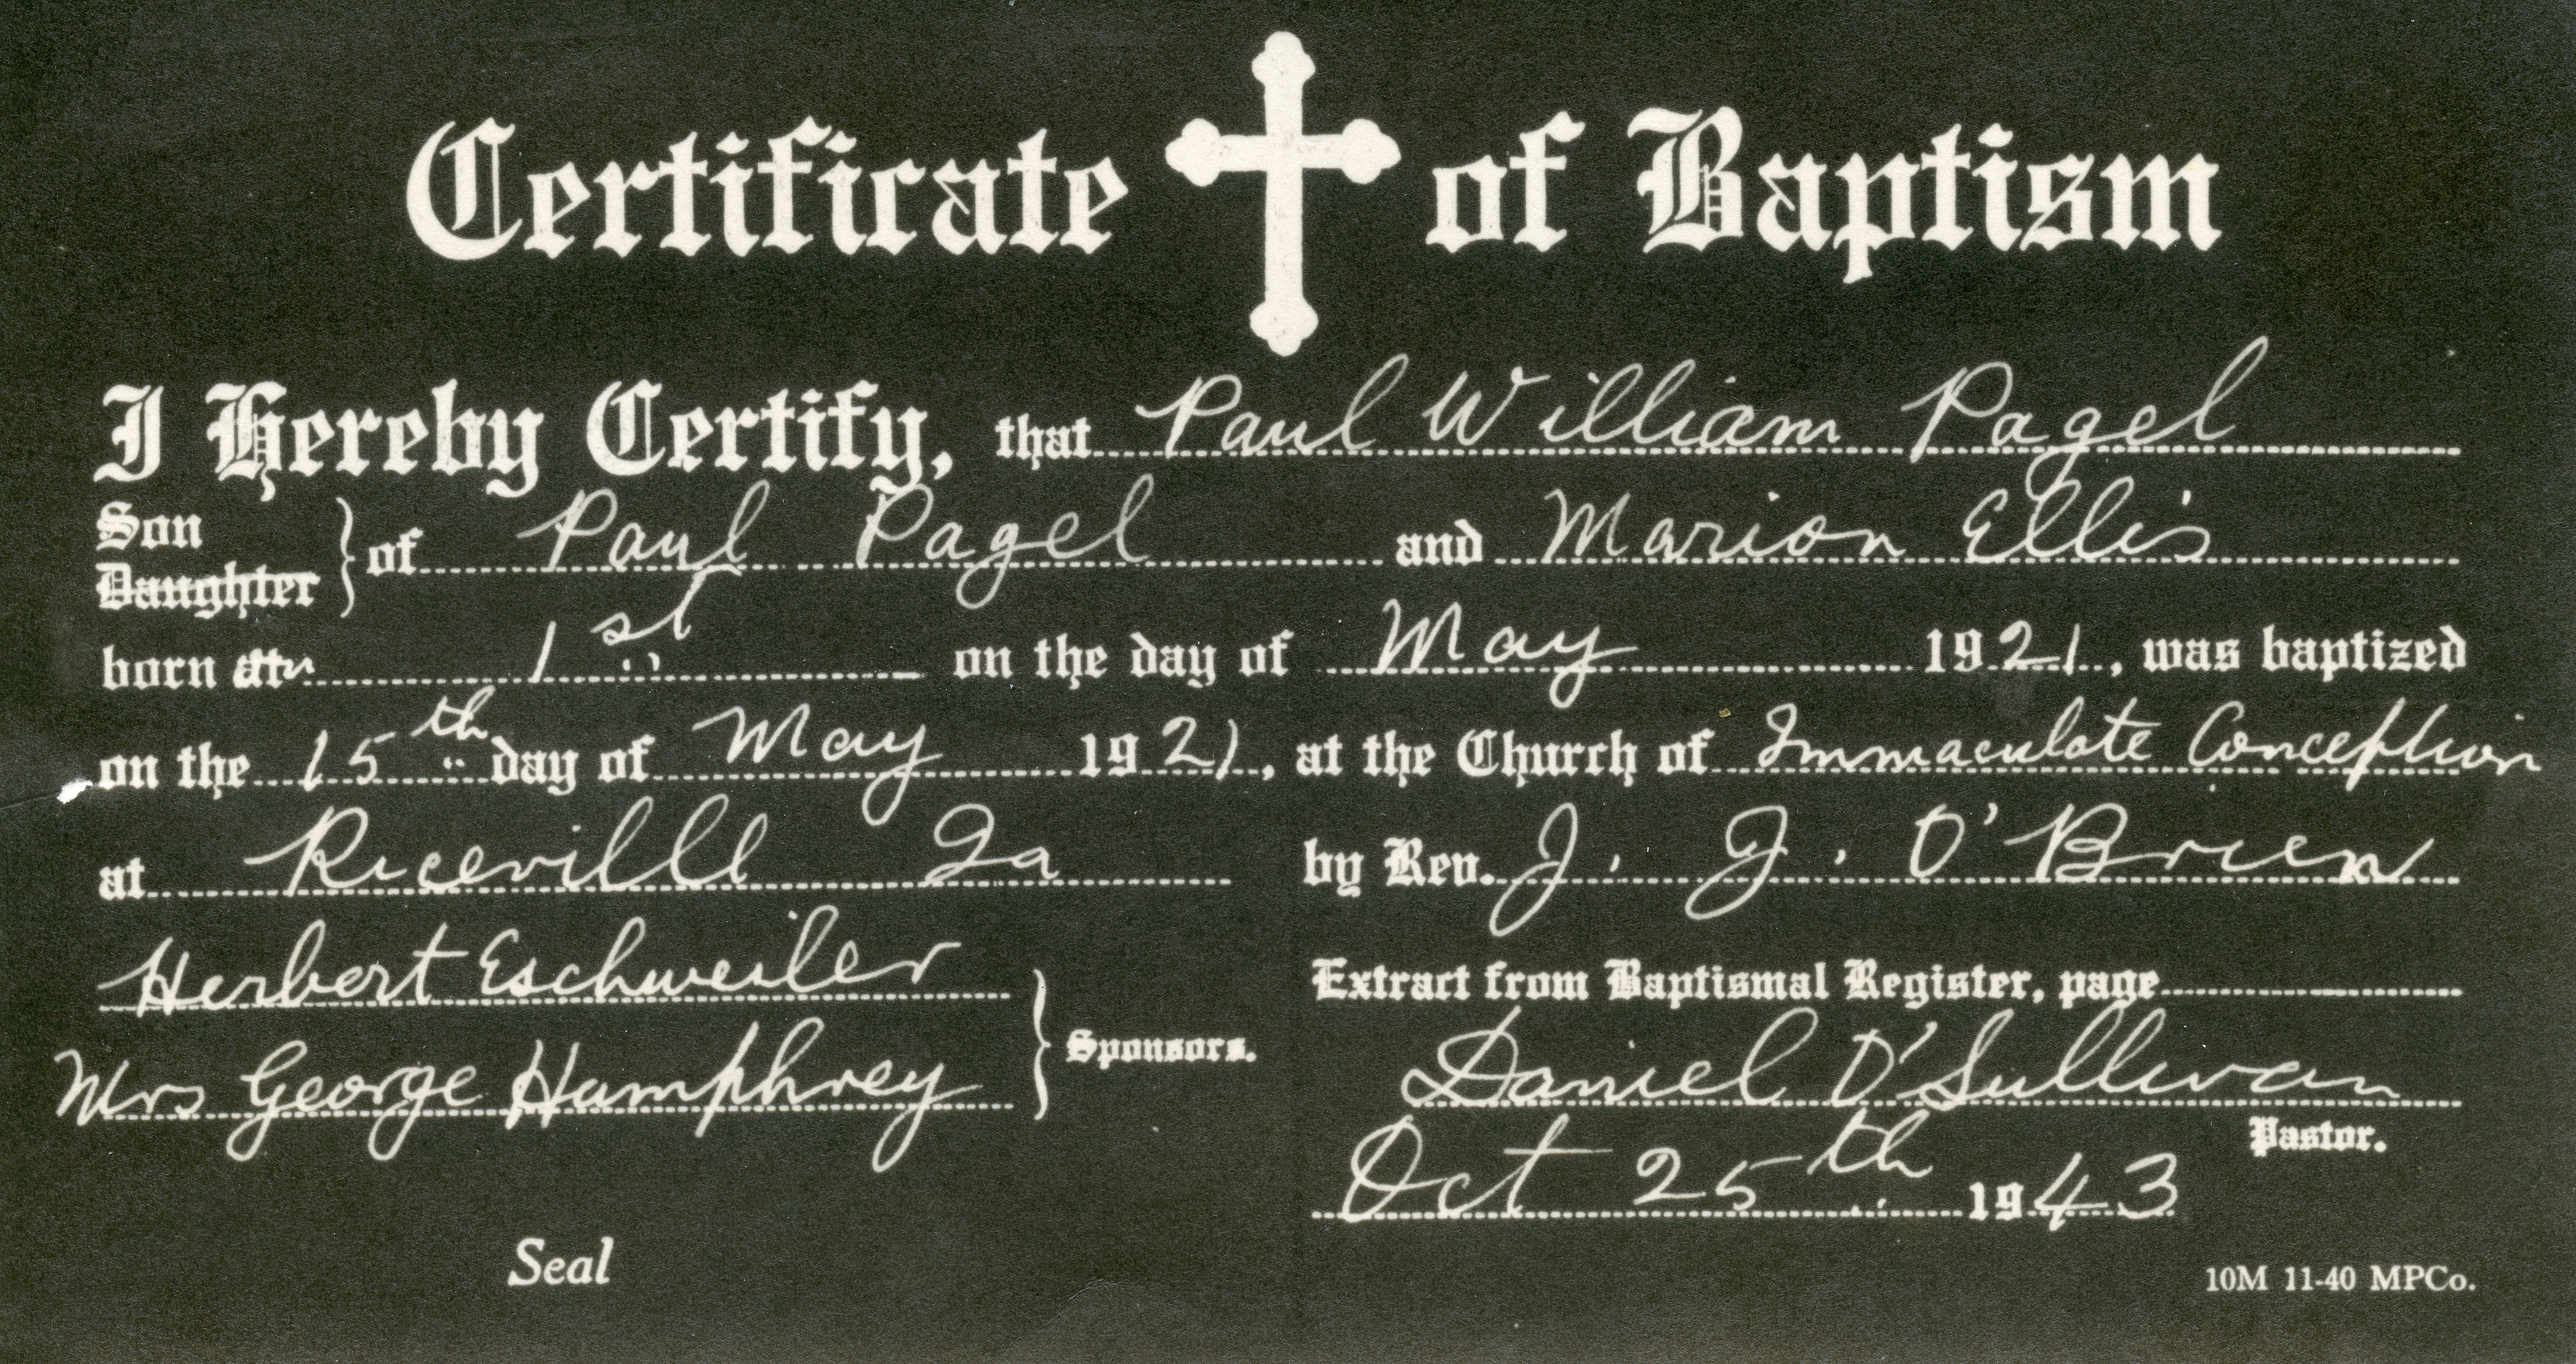 Certificate of Baptism
I Hereby Certify, that Paul William Pagel
Son
Daughter } of Paul Pagel and Marion Ellis
born on 1st on the day of May 1921, was baptized
on the 15th day of May 1921, at the Church of Immaculate Conception
at Riceville Ia by Rev. J. J. O'Brien
Herbert Eschweiler
Extract from Baptismal Register, page
Mrs George Humphrey } Sponsors.
Daniel O'Sullivan
Pastor.
Oct 25th 1943
Seal
10M 11-40 MPCo.